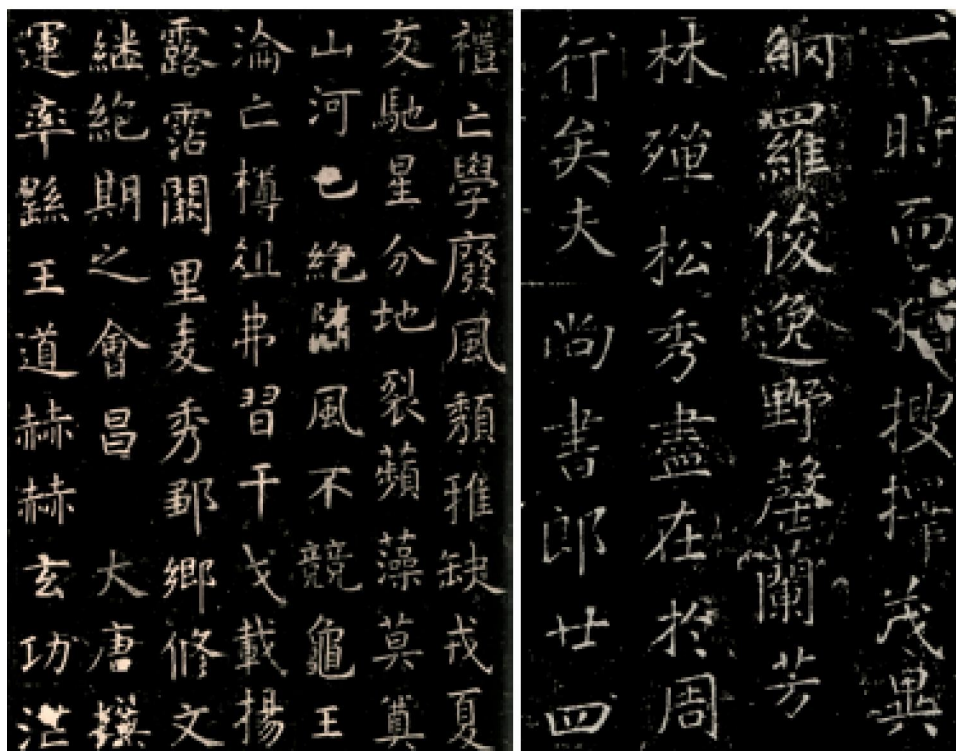 一時而搜擢茂異
網羅俊逸野罄蘭芳
林殫松秀盡在於周
行矣夫尚書郎廿四
禮亡學廢風頹雅缺戎夏
交馳星分地裂蘋藻莫奠
山河已絕隨風不競龜王
淪亡樽俎弗習干戈載揚
露霑闕里麥秀鄒鄉修文
繼絕期之會昌大唐撫
運率繇王道赫赫玄功茫